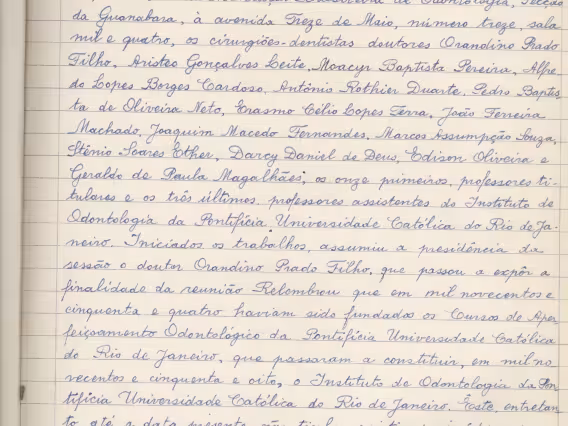 de Odontologia, Secção
da Guanabara, à avenida Treze de Maio, número treze, sala
mil e quatro, os cirurgiões-dentistas doutores Orandino Prado
Filho, Aristeo Gonçalves Leite, Moacyr Baptista Pereira, Alfre
do Lopes Borges Cardoso, Antônio Rothier Duarte, Pedro Baptis
ta de Oliveira Neto, Erasmo Célio Lopes Terra, João Ferreira
Machado, Joaquim Macedo Fernandes, Marcos Assumpção Souza,
Stênio Soares Ether, Darcy Daniel de Deus, Edison Oliveira e
Geraldo de Paula Magalhães; os onze primeiros, professores ti-
tulares e os três últimos, professores assistentes do Instituto de
Odontologia da Pontifícia Universidade Católica do Rio de Ja-
neiro. Iniciados os trabalhos, assumiu a presidência da
sessão o doutor Orandino Prado Filho, que passou a expôr a
finalidade da reunião. Relembrou que em mil novecentos e
cinquenta e quatro haviam sido fundados os Cursos de Aper
feiçoamento Odontológico da Pontifícia Universidade Católica
do Rio de Janeiro, que passaram a constituir, em mil no
vecentos e cinquenta e oito, o Instituto de Odontologia da Pon
tifícia Universidade Católica do Rio de Janeiro. Êste, entretan
to até a data presente não